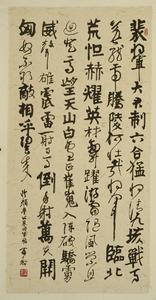 裴將軍大君制六合猛將清九垓戰馬
若龍虎騰陵何壯哉將軍臨北
荒烜赫耀英材劍舞躍游電隨風縈且
迴登高望天山白雲正崔嵬入陣破驕虜
威聲雄震雷一射百馬倒再射萬夫開
匈奴不敢敵相呼歸去來